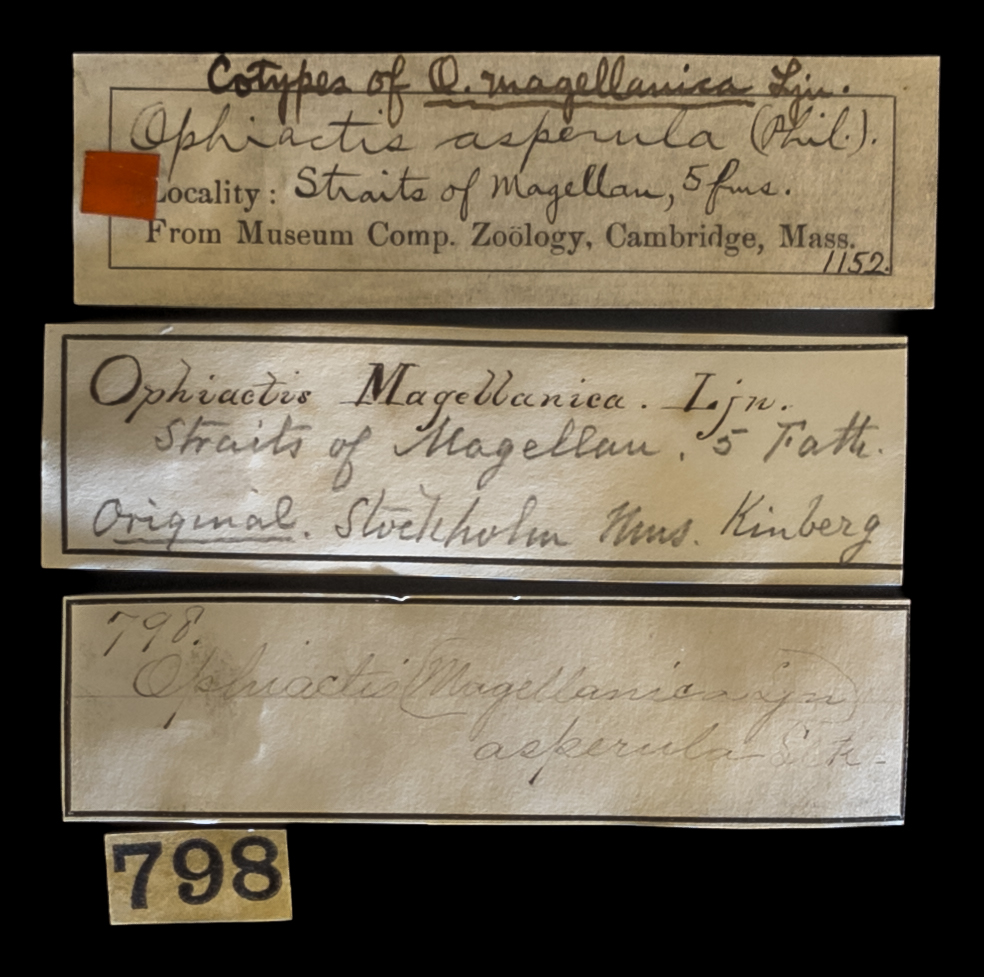 Cotypes of O. magellanica Ljn.
Ophiactis asperula (Phil.).
Locality: Straits of Magellan, 5 fms.
From Museum Comp. Zoölogy, Cambridge, Mass.
1152.
Ophiactis Magellanica. Ljn.
Straits of Magellan. 5 Fath.
Original. Stockholm Mus. Kinberg
798.
Ophiactis (Magellanica Ljn)
asperula
798